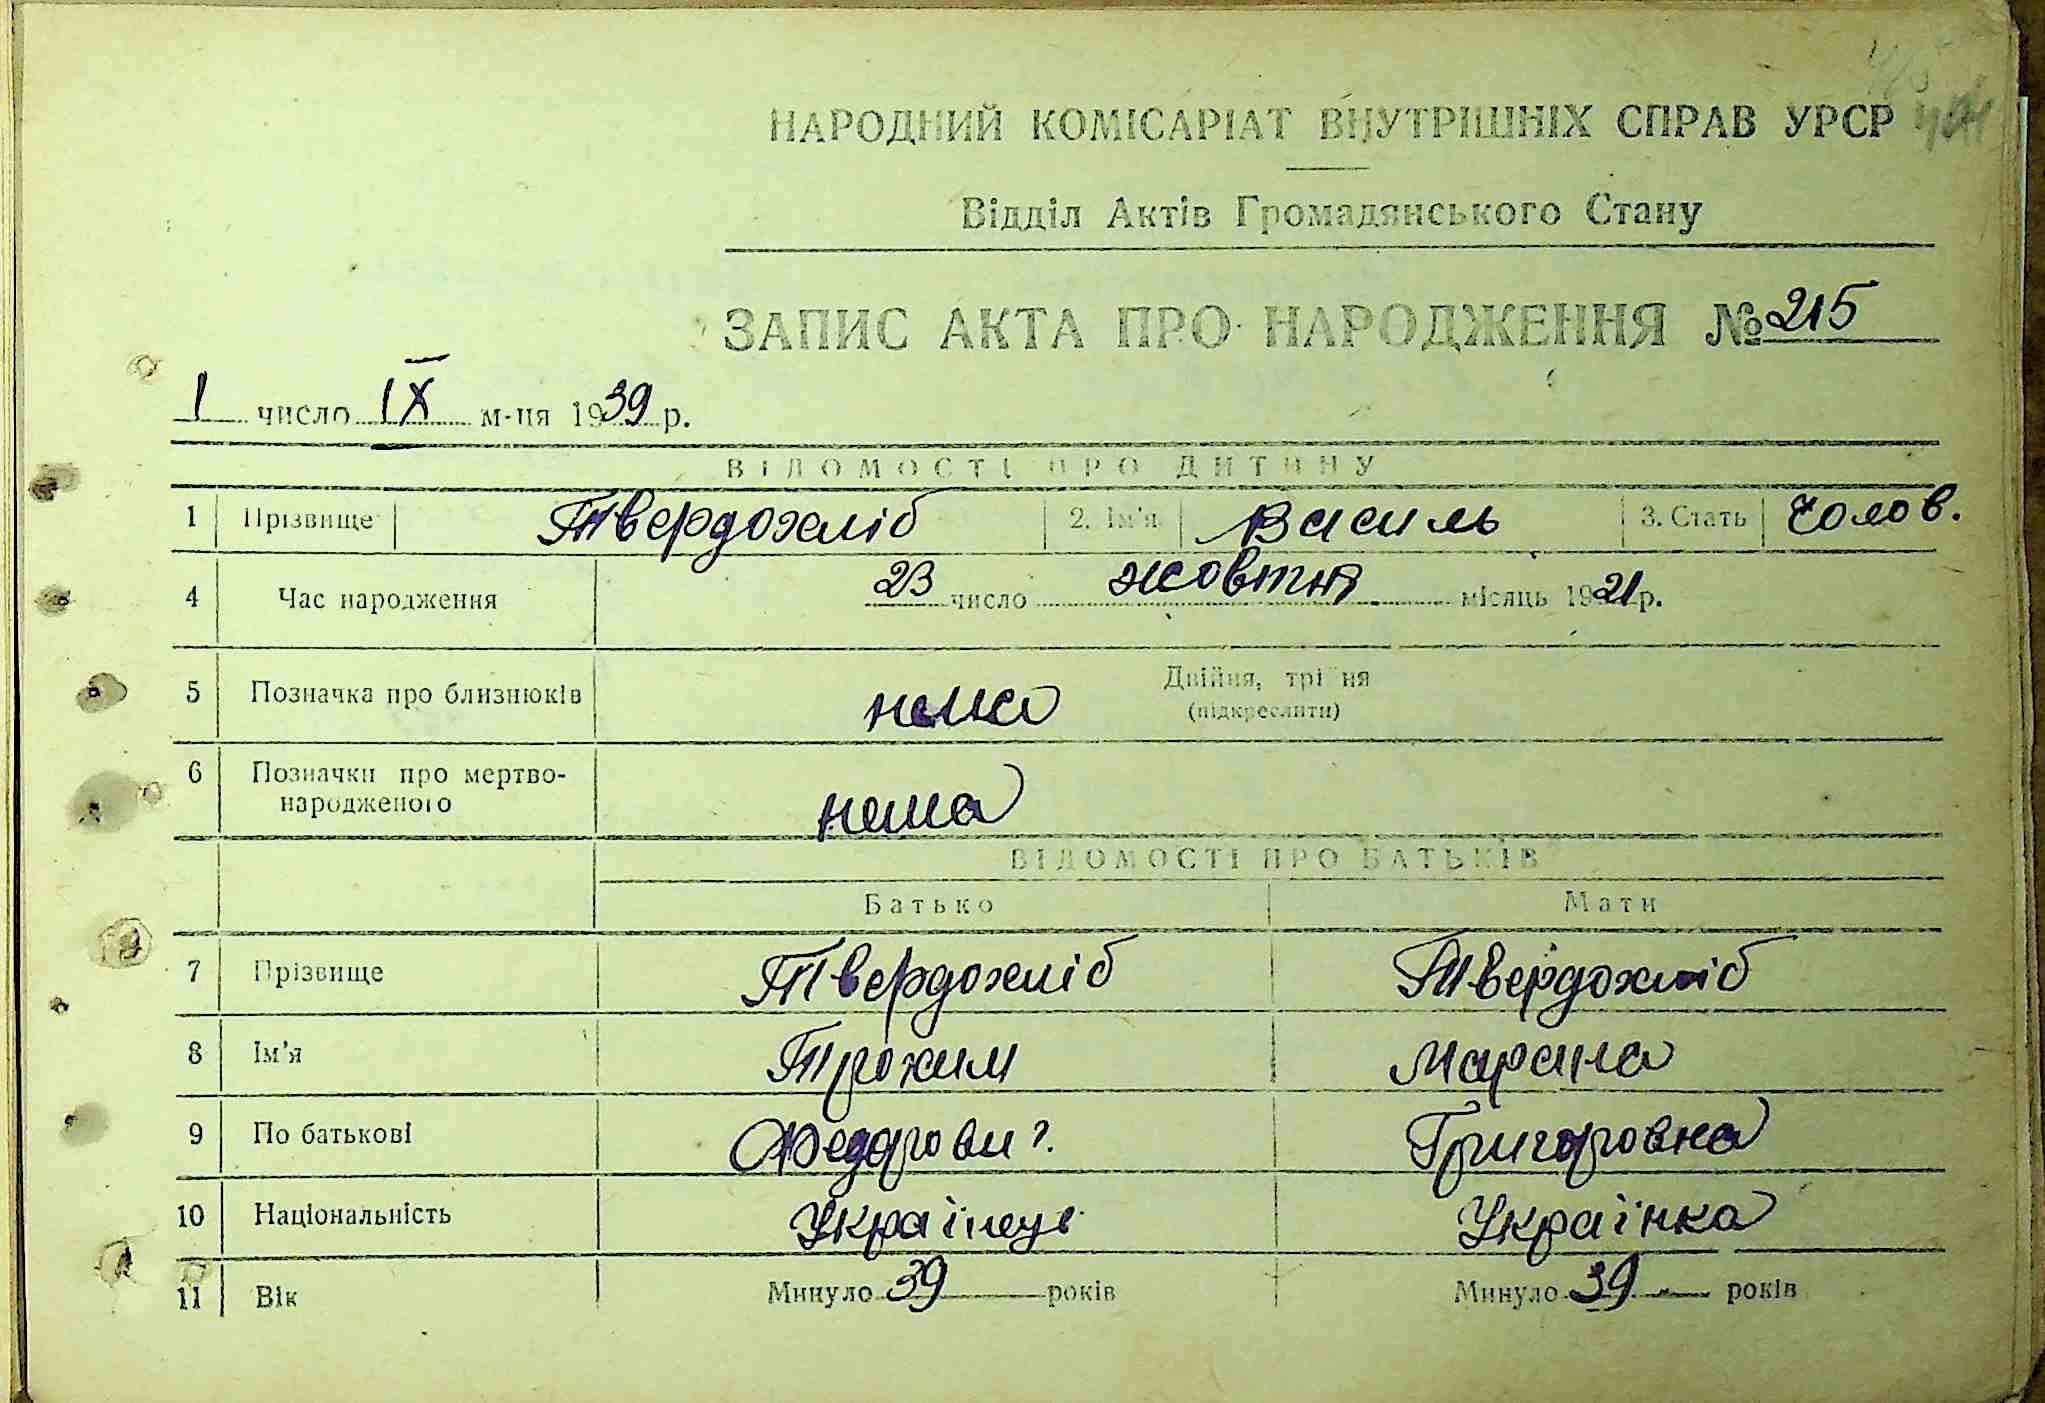 НАРОДНИЙ КОМІСАРІАТ ВНУТРІШНІХ СПРАВ УРСР
Відділ Актів Громадянського Стану
ЗАПИС АКТА ПРО НАРОДЖЕННЯ № 215
1 число ІХ м-ця 1939 р.
ВІДОМОСТІ ПРО ДИТИНУ
1 Прізвище Твердохліб 2. Ім'я Василь 3. Стать чолов.
4 Час народження 23 число жовтня місяць 1921 р.
5 Позначка про близнюків нема Двійня, трійня
(підкреслити)
6 Позначки про мертво-
народженого нема
ВІДОМОСТІ ПРО БАТЬКІВ
Батько Мати
7 Прізвище Твердохліб Твердохліб
8 Ім'я Трохим Марина
9 По батькові Федорович Григоровна
10 Національність Українець Українка
11 Вік Минуло 39 років Минуло 39 років